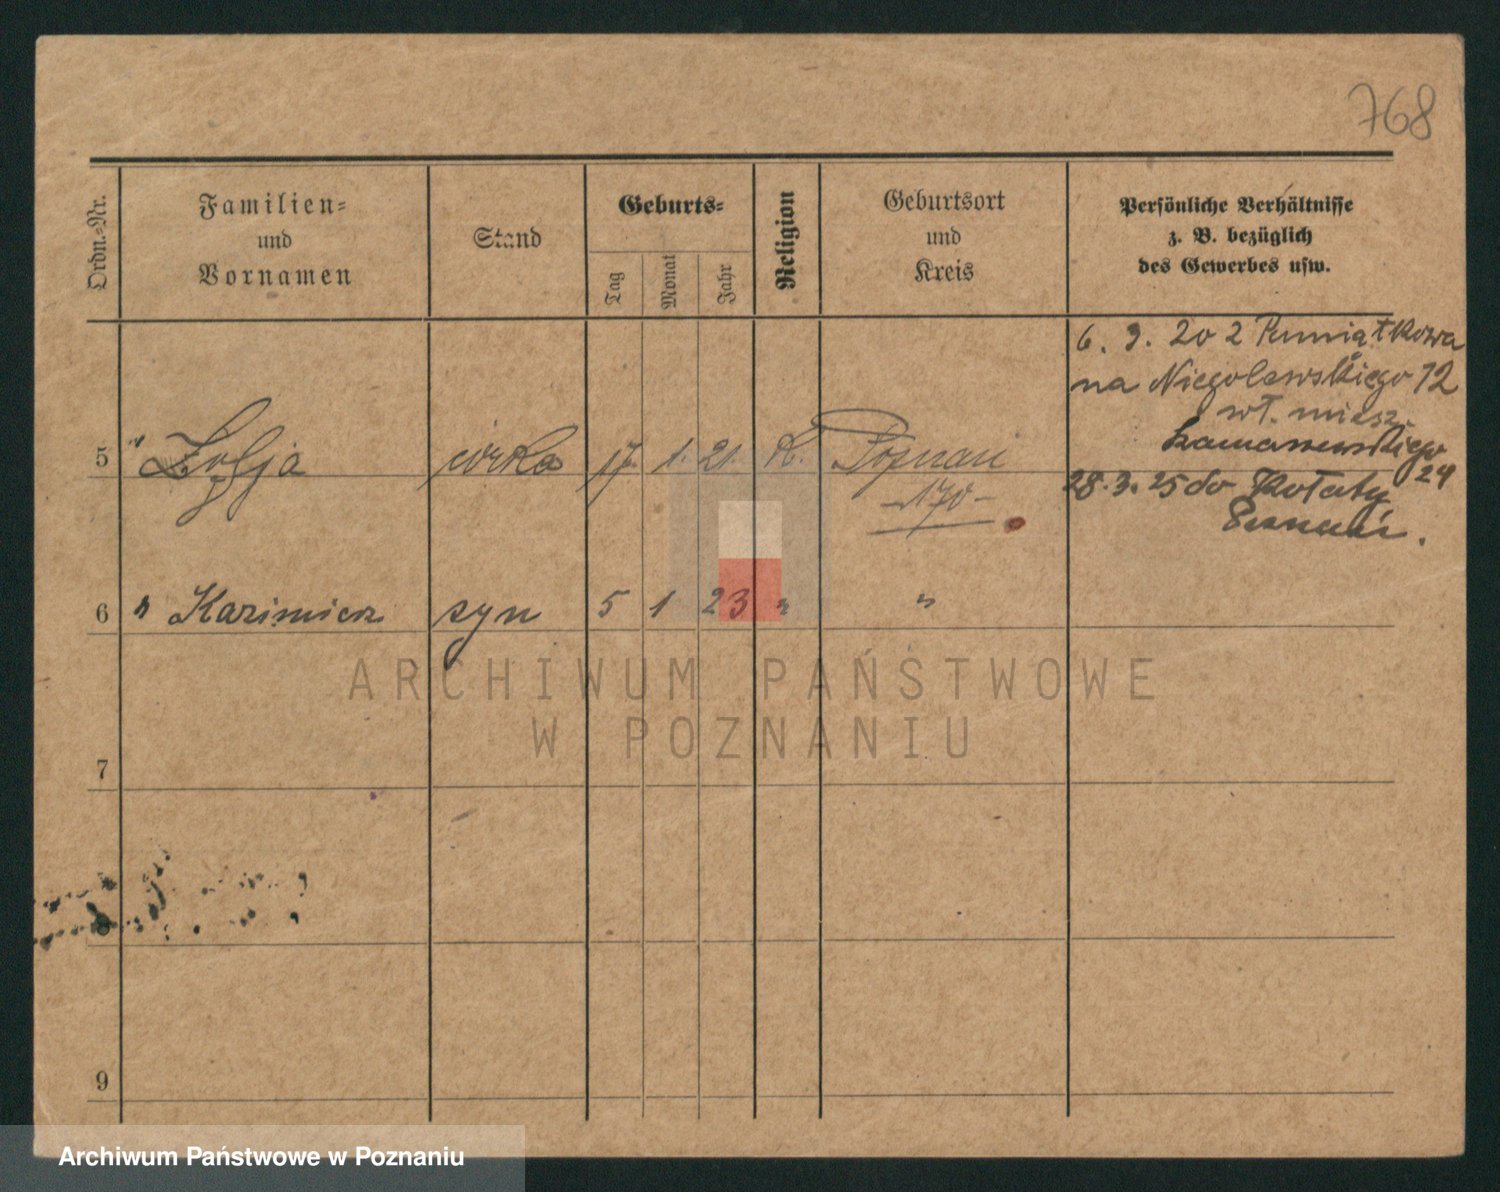 768
Ordn.=Nr.
Familien=
und
Vornamen
Stand
Geburts=
Tag
Monat
Jahr
Religion
Geburtsort
und
Kreis
Persönliche Verhältnisse
z. B. bezüglich
des Gewerbes usw.
6. 9. 20 z Pamiątkowa
na Niegolewskiego 12
wł. miesz.
24
5 " Zofja córka 17. 1. 21 K. Poznań
28. 3. 25 do Kołaty
-170-
Poznań.
6 " Kazimierz syn 5 1 23 " "
ARCHIWUM PAŃSTWOWE
W POZNANIU
7
8
9
Archiwum Państwowe w Poznaniu